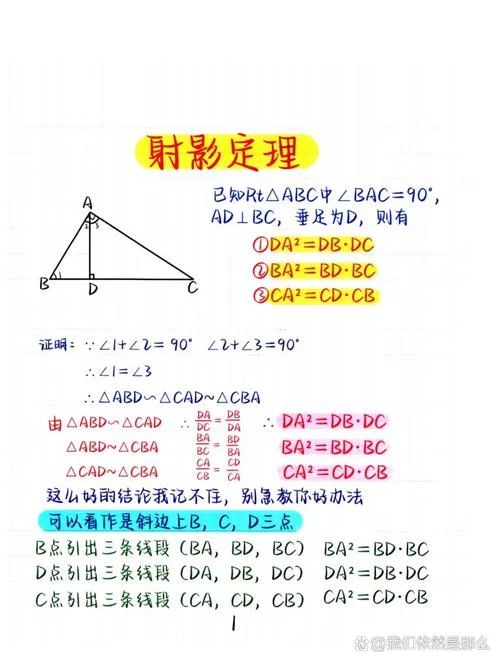 射影定理
已知Rt△ABC中∠BAC=90°,
AD⊥BC, 垂足为D, 则有
①DA²=DB·DC
②BA²=BD·BC
③CA²=CD·CB
A
2 3
B 1
D
C
证明: ∵∠1+∠2=90° ∠2+∠3=90°
∴∠1=∠3
∴△ABD∽△CAD~△CBA
由△ABD∽△CAD ∴DA/DC=DB/DA ∴DA²=DB·DC
△ABD~△CBA BA/BC=BD/BA BA²=BD·BC
△CAD~△CBA CA/CB=CD/CA CA²=CD·CB
这么好的结论我记不住, 别急教你好办法
可以看作是斜边上B, C, D三点
B点引出三条线段(BA, BD, BC) BA²=BD·BC
D点引出三条线段(DA, DB, DC) DA²=DB·DC
C点引出三条线段(CA, CD, CB) CA²=CD·CB
1
@我们依然是那么